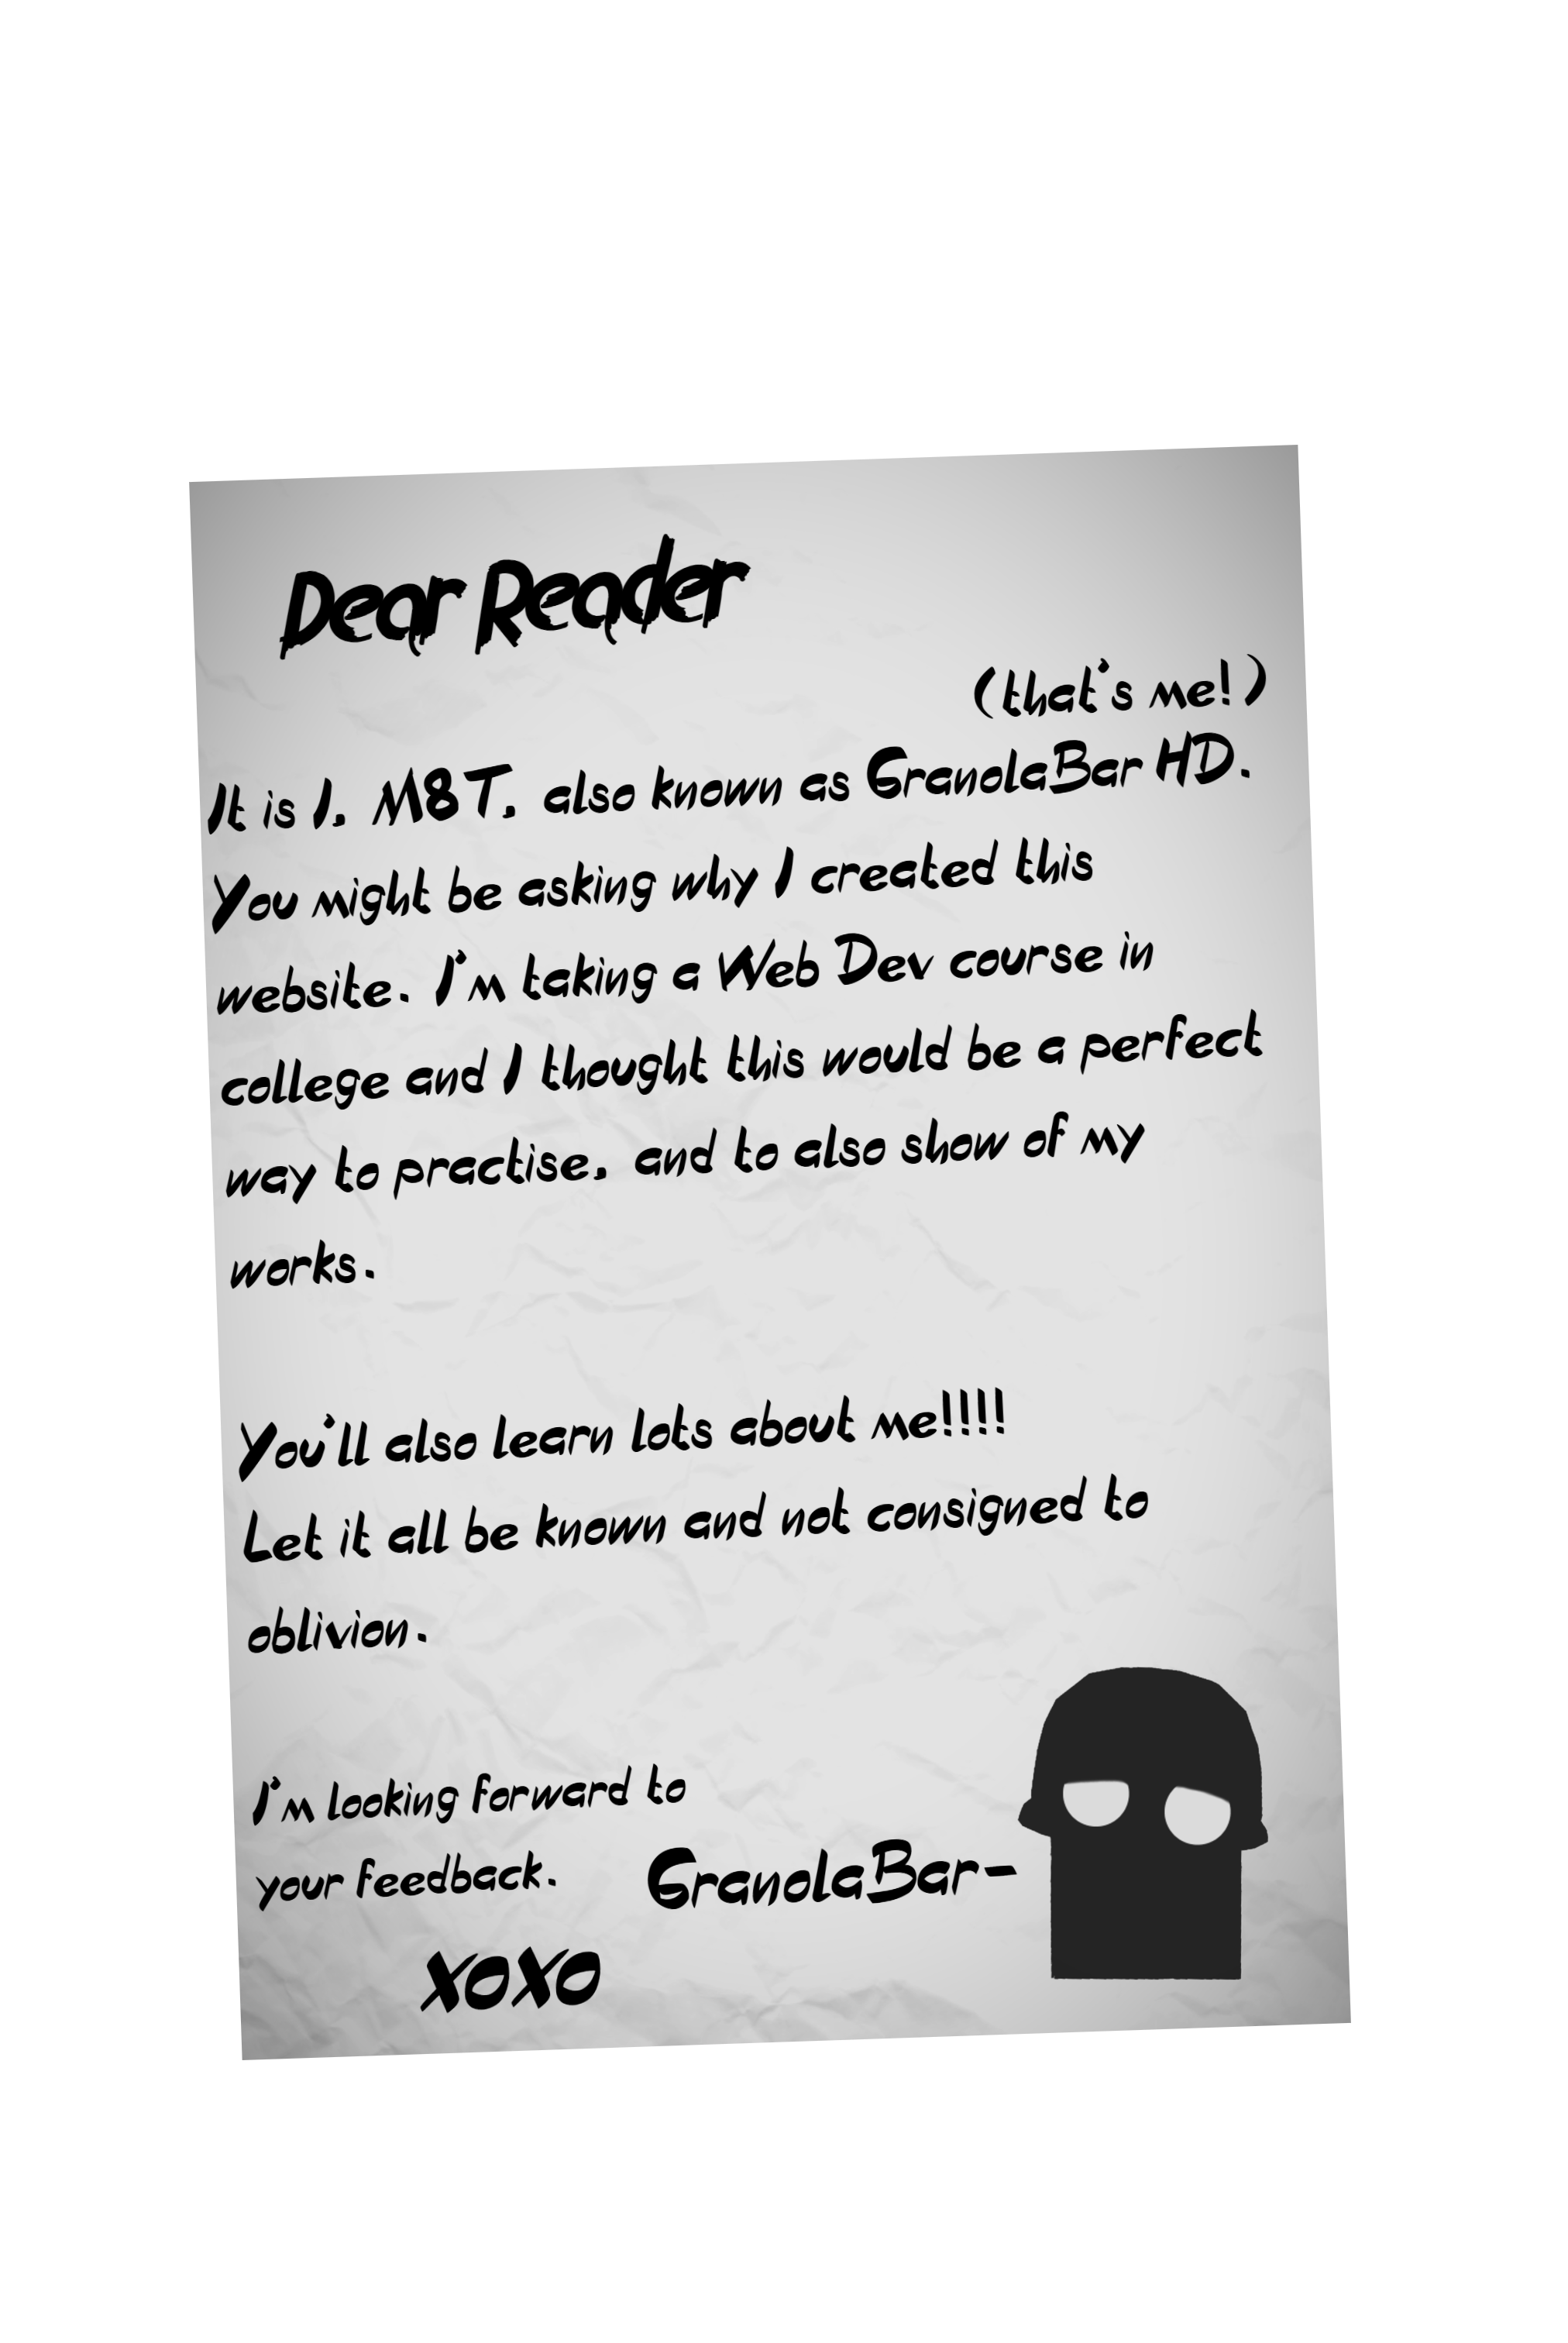 Dear Reader
(that's me!)
It is I, M8T, also known as GranolaBar HD.
You might be asking why I created this
website. I'm taking a Web Dev course in
college and I thought this would be a perfect
way to practise, and to also show of my
works.
You'll also learn lots about me!!!!
Let it all be known and not consigned to
oblivion.
I'm looking forward to
your feedback.
GranolaBar-
xoxo